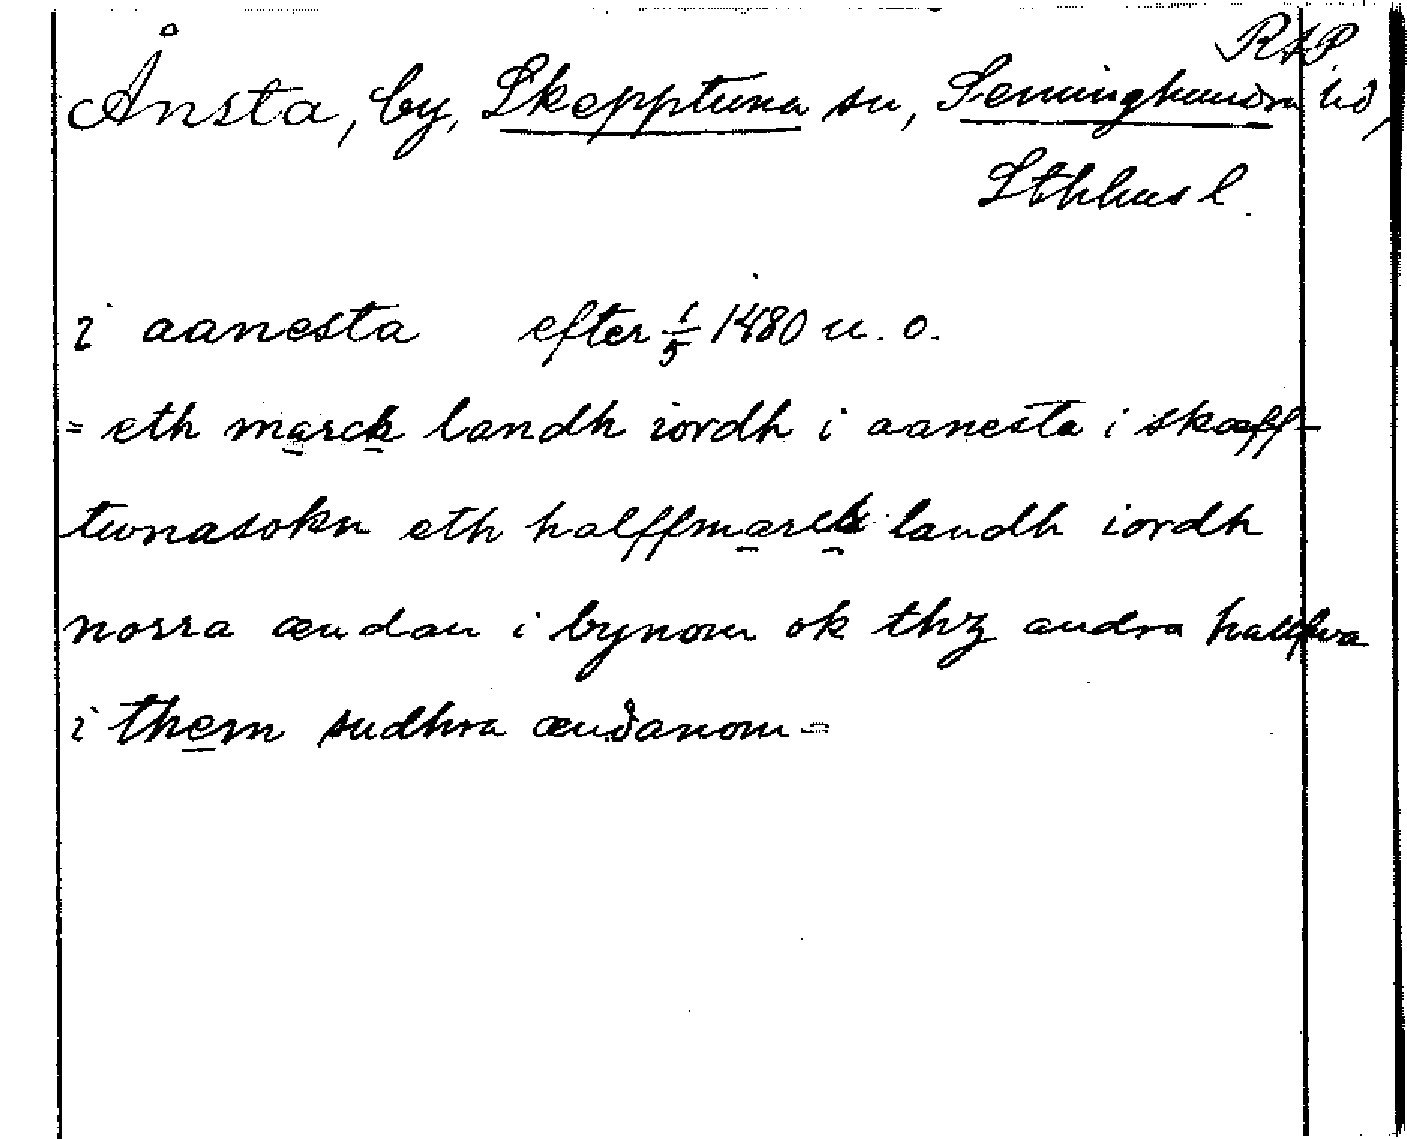 RAP.
Ånsta, by, Skepptuna sn, Seminghundra hd,
Sthlms l.
i aanesta efter 1/5 1480 u. o.
= eth marck landh iordh i aanesta i skæff-
tunasokn eth halffmarck landh iordh
norra ændan i bynom ok thz andra halffwa
i them sudhra ændanom =